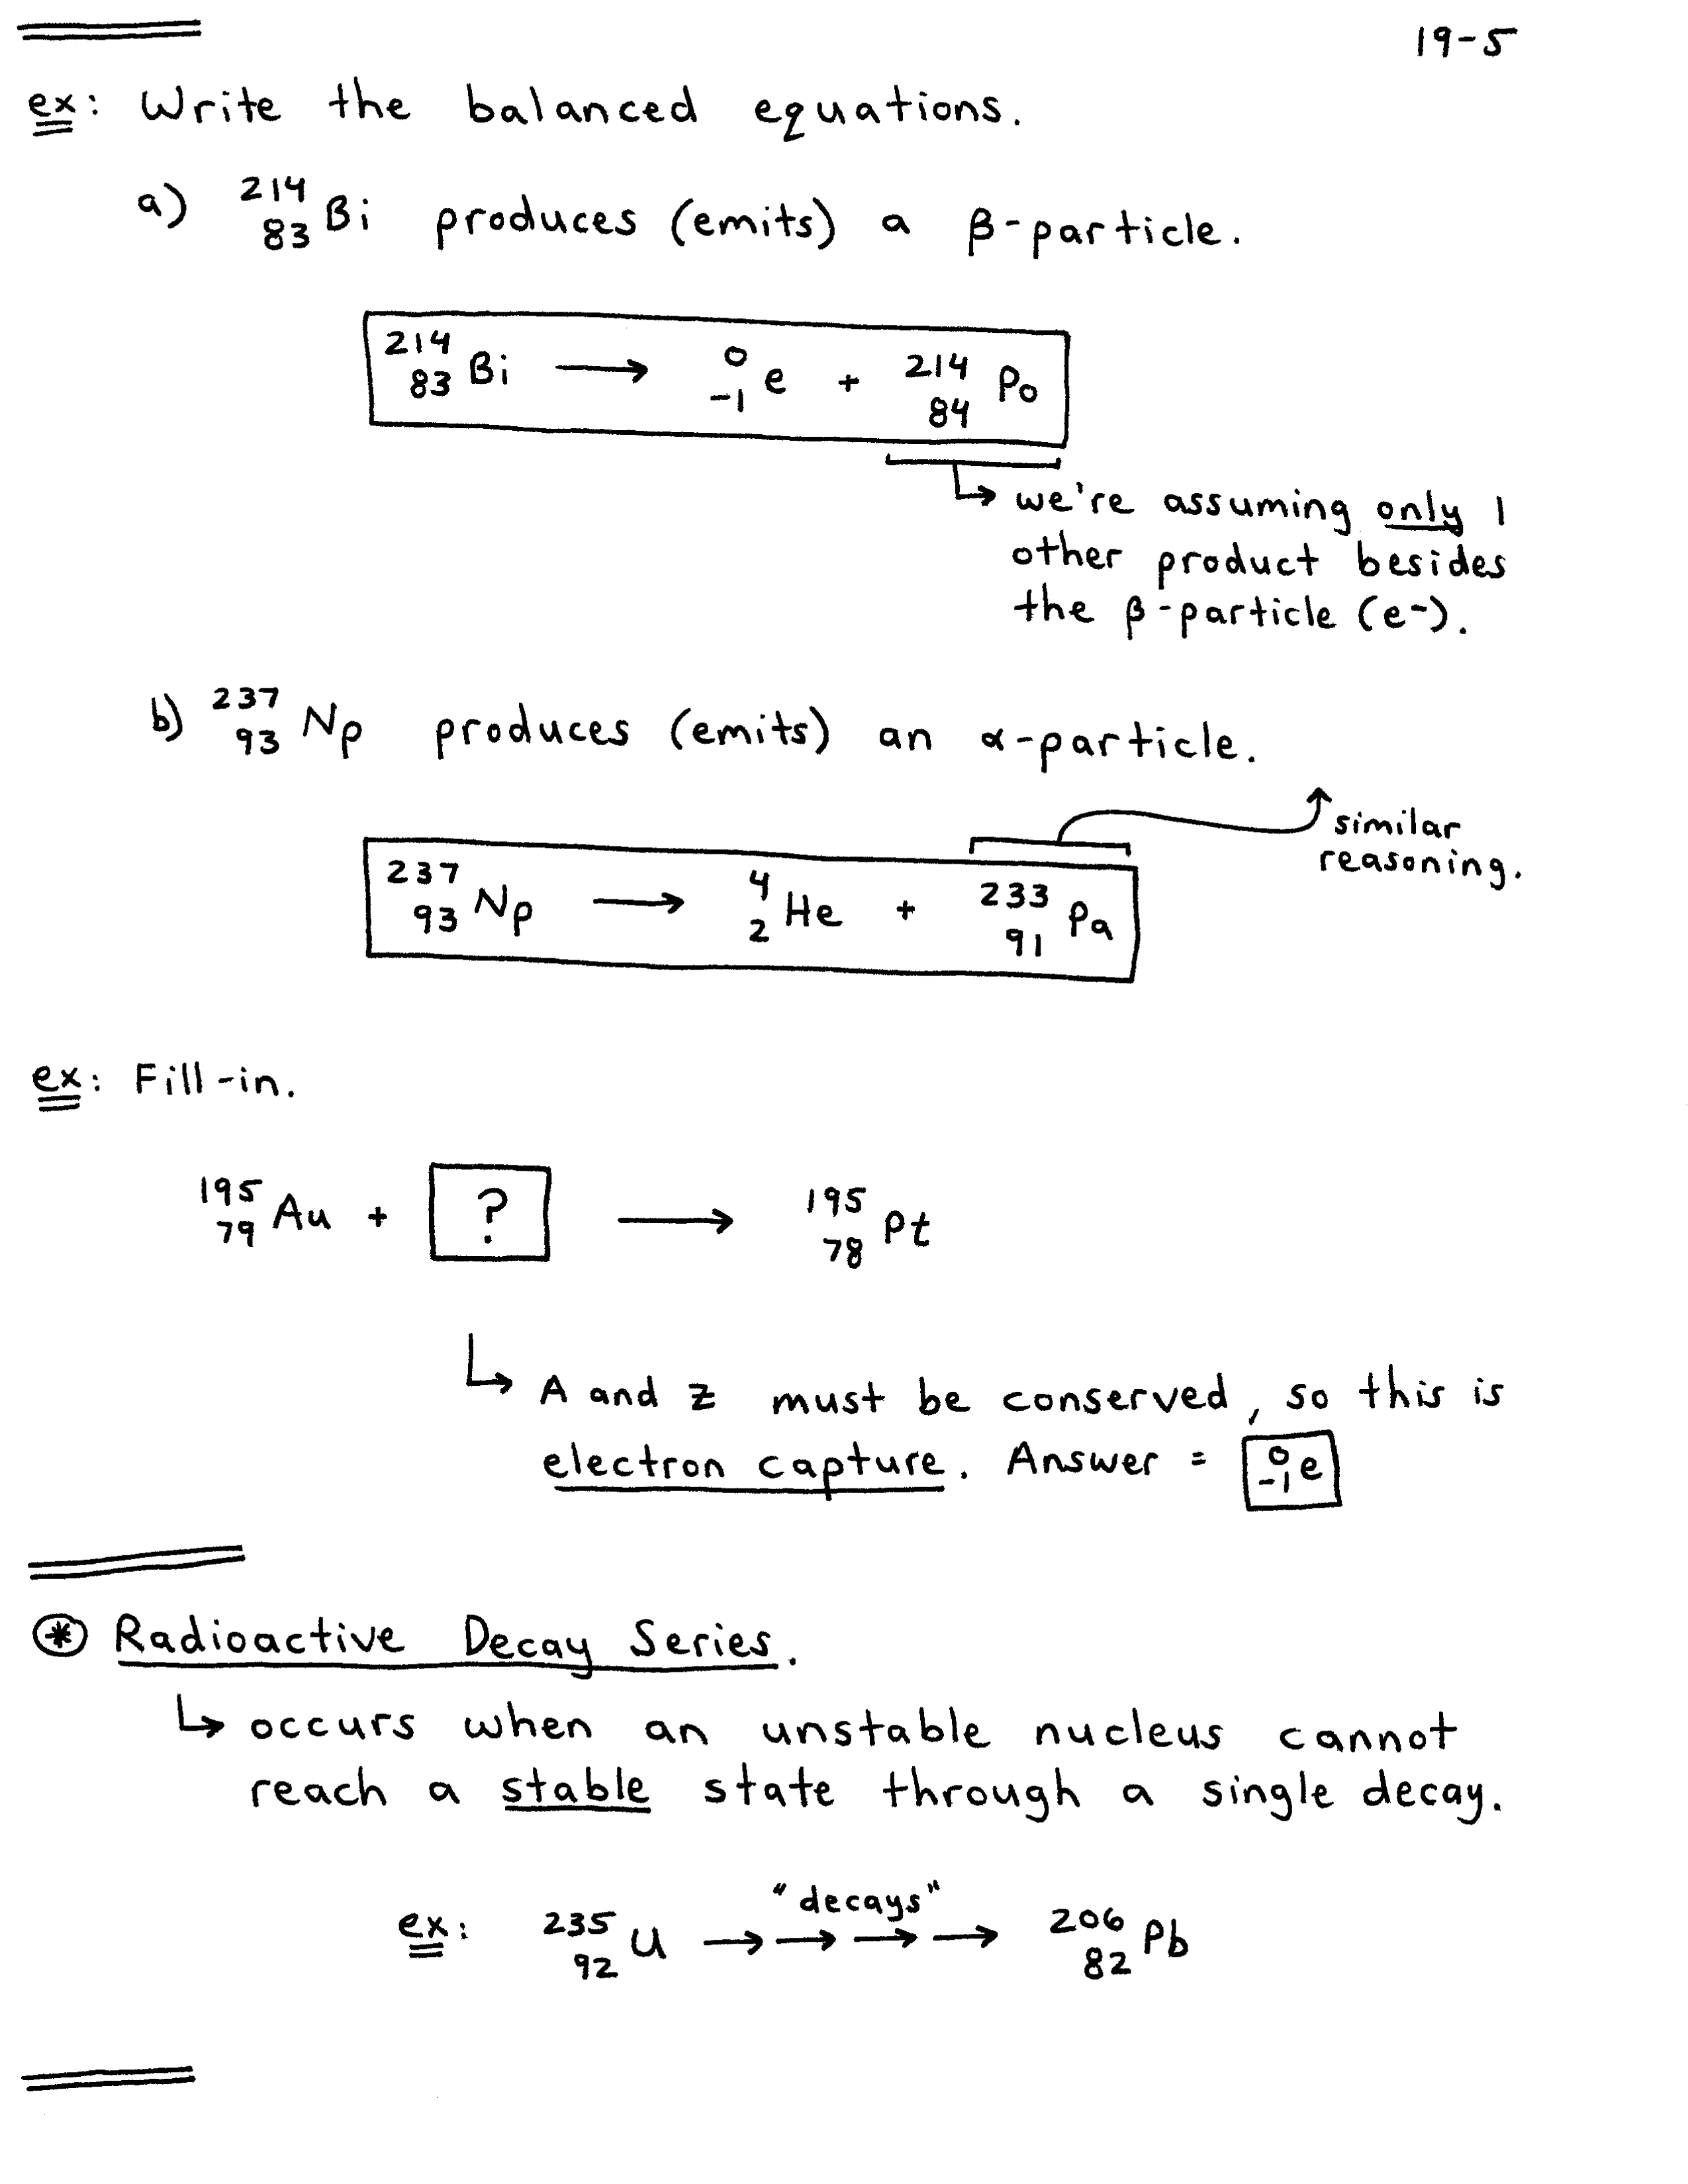 19-5
ex: Write the balanced equations.
a) ²¹⁴₈₃Bi produces (emits) a β-particle.
²¹⁴₈₃Bi ⟶ ⁰₋₁e + ²¹⁴₈₄Po
↳ we're assuming only 1
other product besides
the β-particle (e⁻).
b) ²³⁷₉₃Np produces (emits) an α-particle.
similar
reasoning.
²³⁷₉₃Np ⟶ ⁴₂He + ²³³₉₁Pa
ex: Fill-in.
¹⁹⁵₇₉Au + ? ⟶ ¹⁹⁵₇₈Pt
↳ A and Z must be conserved, so this is
electron capture. Answer = ⁰₋₁e
⊛ Radioactive Decay Series.
↳ occurs when an unstable nucleus cannot
reach a stable state through a single decay.
"decays"
ex: ²³⁵₉₂U →→→→ ²⁰⁶₈₂Pb